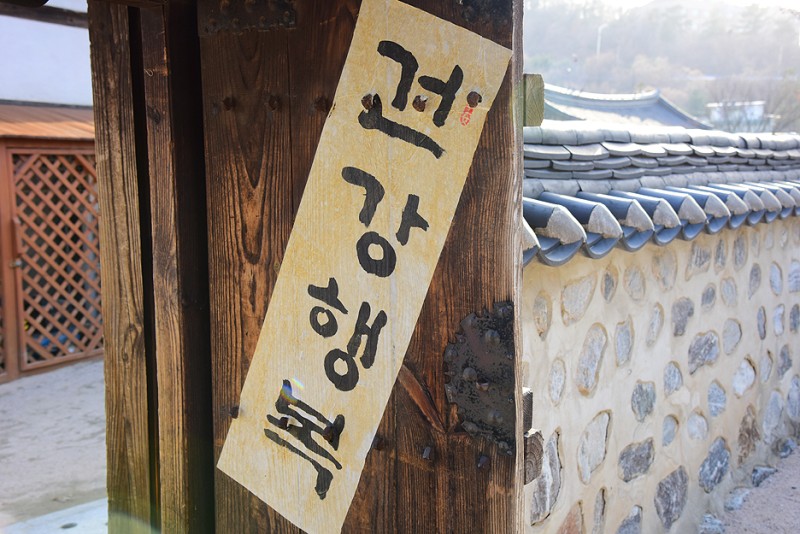 건강행복